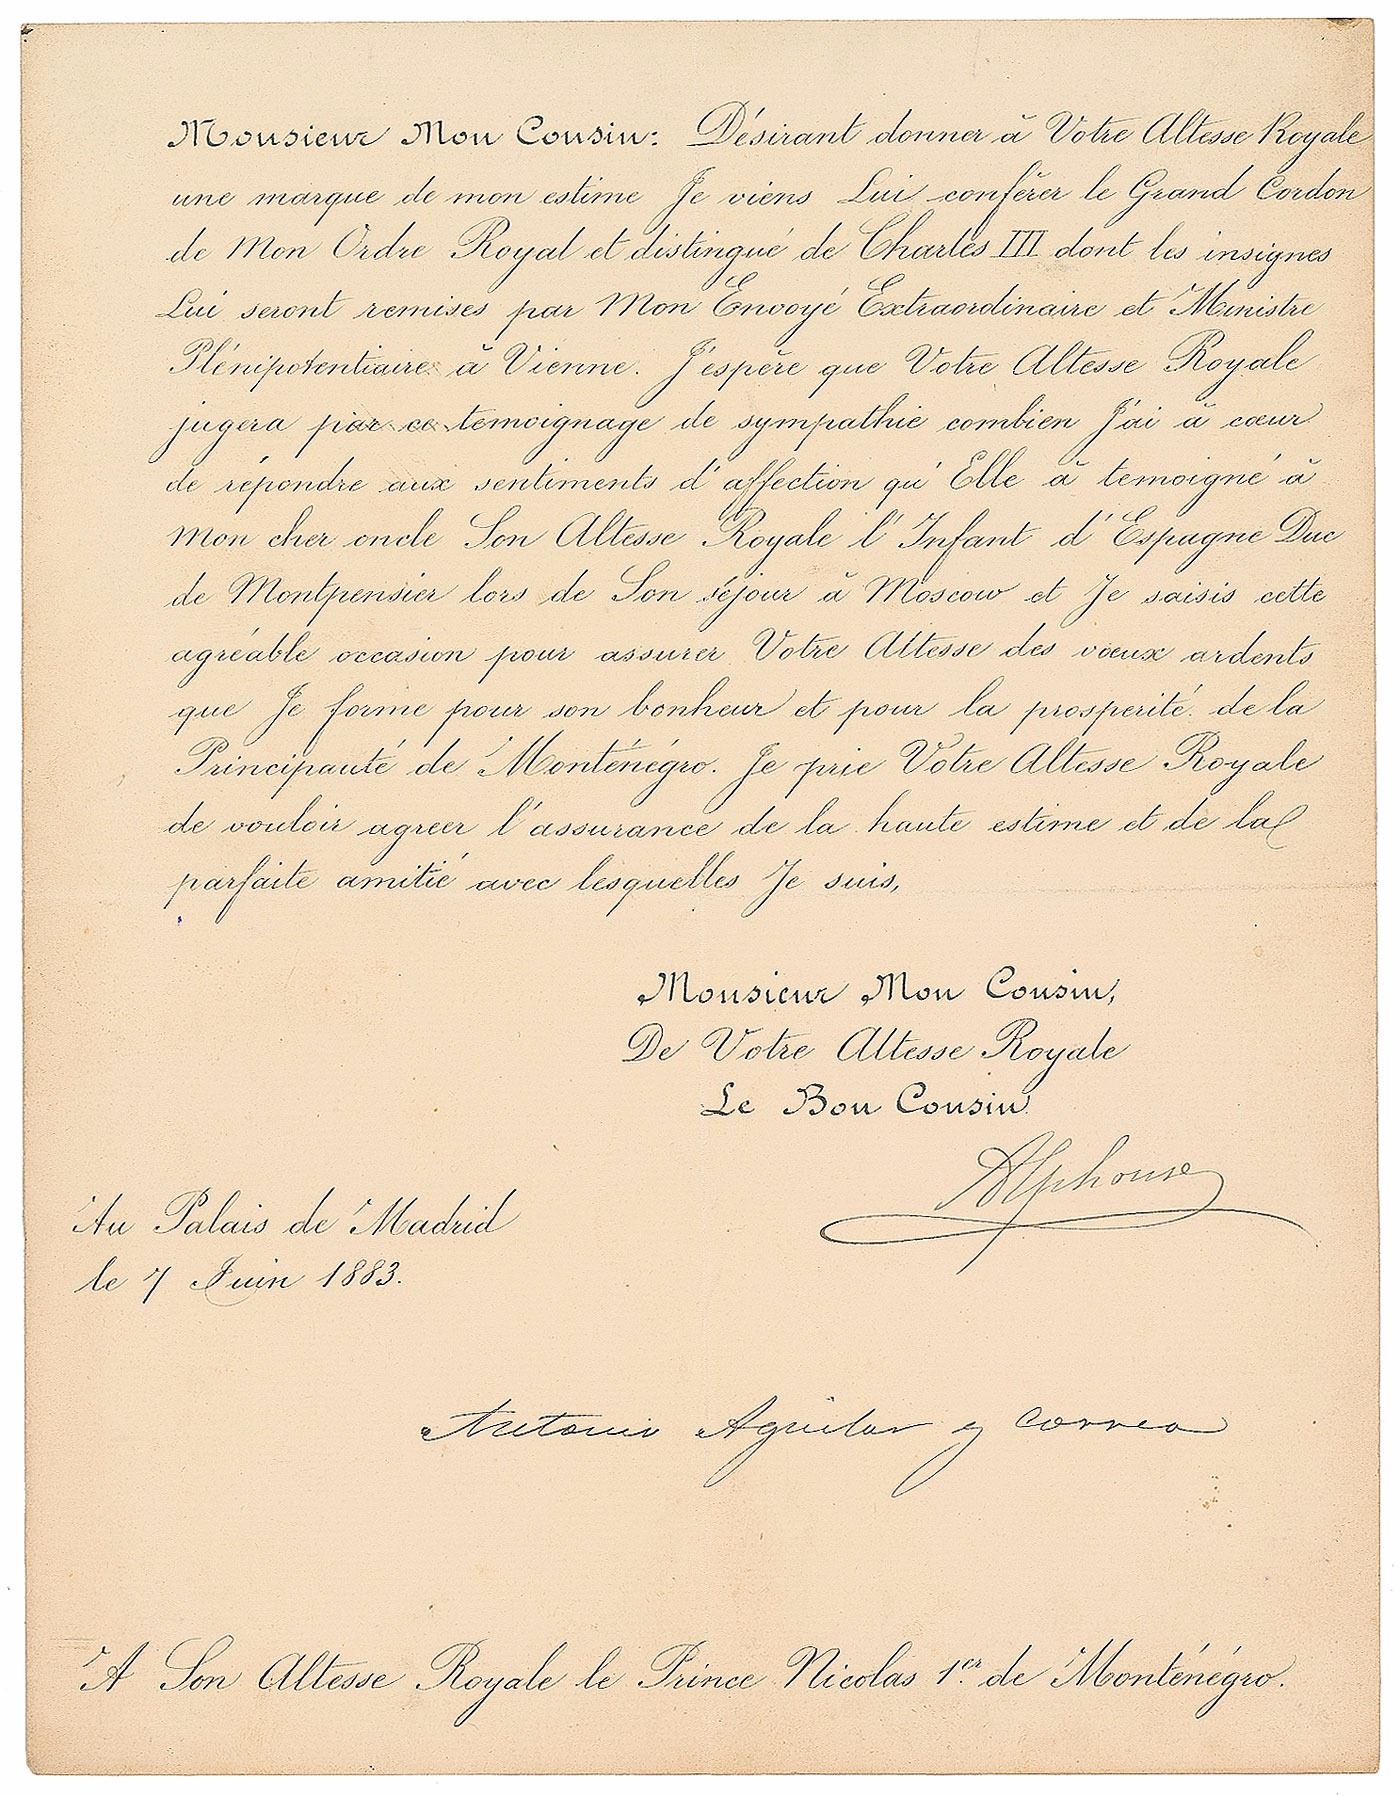 Monsieur Mon Cousin: Désirant donner à Votre Altesse Royale
une marque de mon estime Je viens Lui conférer le Grand Cordon
de Mon Ordre Royal et distingué de Charles III dont les insignes
Lui seront remises par Mon Envoyé Extraordinaire et Ministre
Plénipotentiaire à Vienne. J'espère que Votre Altesse Royale
jugera par ce temoignage de sympathie combien J'ai à cœur
de répondre aux sentiments d'affection qu'Elle à temoigné à
mon cher oncle Son Altesse Royale l'Infant d'Espagne Duc
de Montpensier lors de Son séjour à Moscow et Je saisis cette
agréable occasion pour assurer Votre Altesse des vœux ardents
que Je forme pour son bonheur et pour la prosperité de la
Principauté de Monténégro. Je prie Votre Altesse Royale
de vouloir agreer l'assurance de la haute estime et de la
parfaite amitié avec lesquelles Je suis,
Monsieur Mon Cousin,
De Votre Altesse Royale
Le Bon Cousin
Alphonse
Au Palais de Madrid
le 7 Juin 1883.
Antonio Aguilar y Correa
A Son Altesse Royale le Prince Nicolas 1er. de Monténégro.